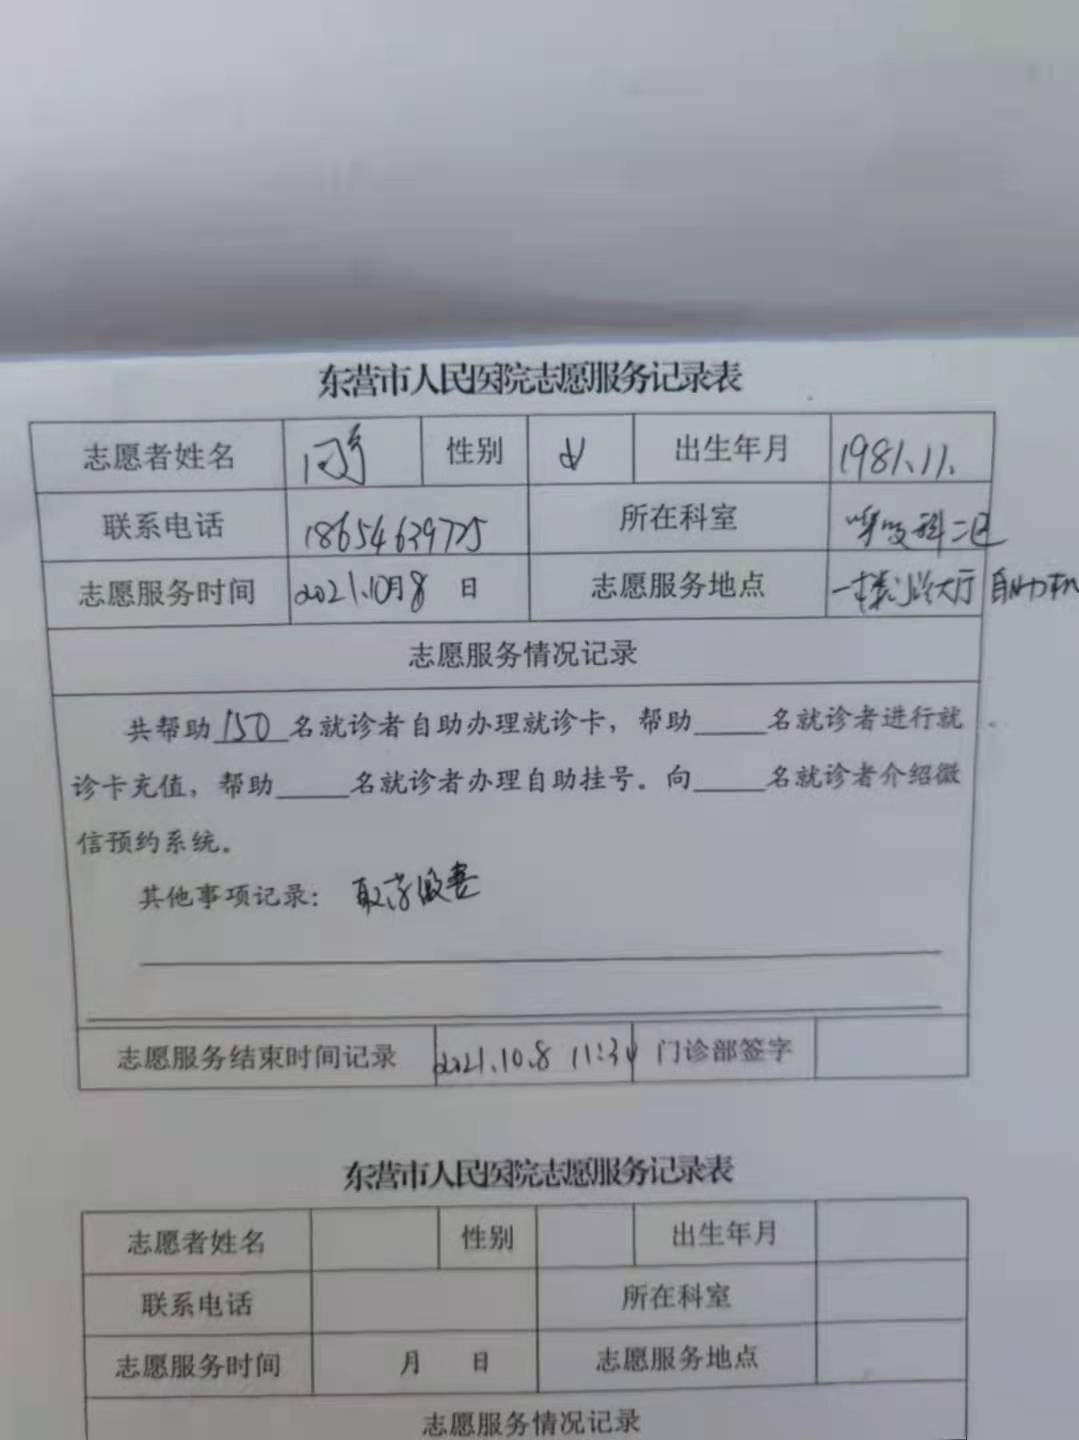 东营市人民医院志愿服务记录表
志愿者姓名 性别 女 出生年月 1981.11.
联系电话 18654639775 所在科室 呼吸科二区
志愿服务时间 2021.10月8日 志愿服务地点 一楼门诊大厅自助机
志愿服务情况记录
共帮助150名就诊者自助办理就诊卡，帮助_____名就诊者进行就
诊卡充值，帮助_____名就诊者办理自助挂号。向_____名就诊者介绍微
信预约系统。
其他事项记录： 取药
志愿服务结束时间记录 2021.10.8 11:30 门诊部签字
东营市人民医院志愿服务记录表
志愿者姓名 性别 出生年月
联系电话 所在科室
志愿服务时间 月 日 志愿服务地点
志愿服务情况记录